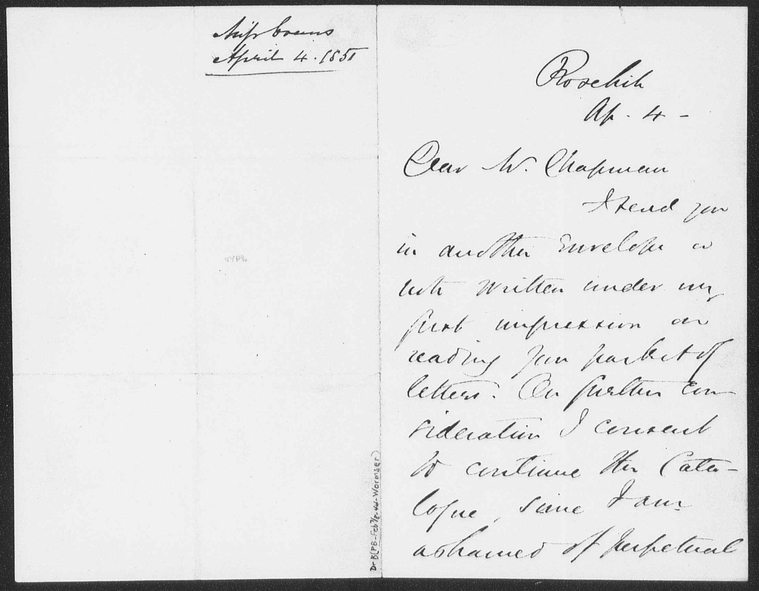 Miss Evans
April 4. 1851
Rosehill
Ap. 4 -
Dear Mr. Chapman
I send you
in another envelope a
note written under my
first impression on
reading your packet of
letters. On further con-
sideration I consent
to continue the Cata-
logue, since I am
ashamed of perpetual